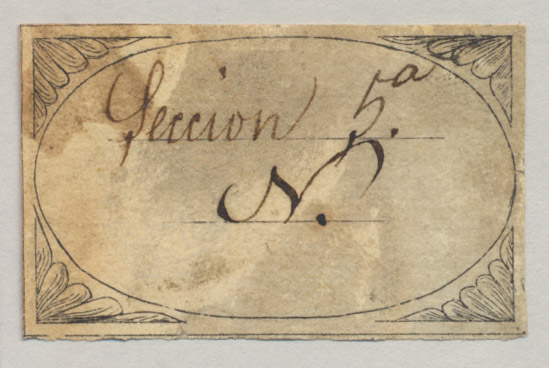 Seccion 5.a
N.